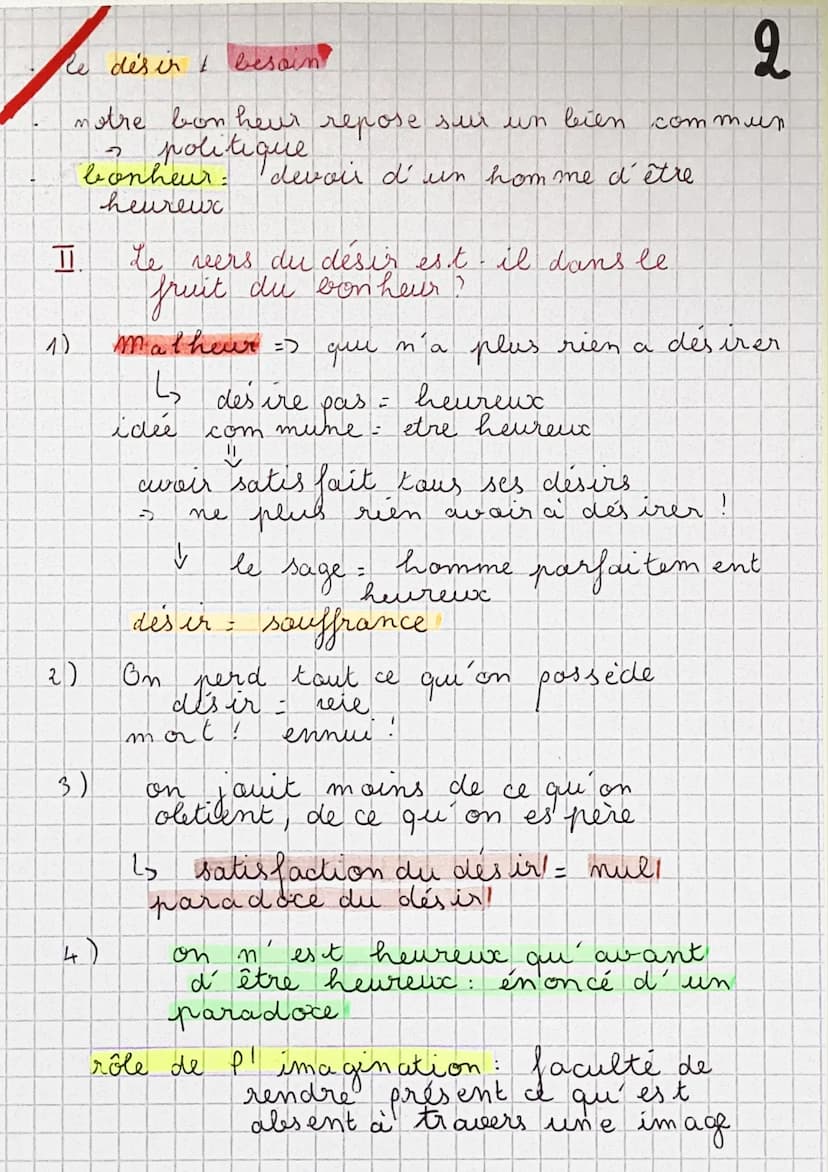 2
- le désir / besoin
- notre bonheur repose sur un bien commun
→ politique
- bonheur = devoir d'un homme d'être
heureux
II. Le vers du désir est-il dans le
fruit du bonheur ?
1) Malheur => qui n'a plus rien a désirer
↳ désire pas = heureux
idée commune = etre heureux
=
↓
avoir satisfait tous ses désirs
→ ne plus rien avoir à désirer !
↓ le sage = homme parfaitement
heureux
désir = souffrance
2) On perd tout ce qu'on possède
désir = vie
mort ! ennui !
3) on jouit moins de ce qu'on
obtient, de ce qu'on espère
↳ satisfaction du désir = nul
paradoxe du désir
4) on n'est heureux qu'avant
d'être heureux : énoncé d'un
paradoxe
rôle de l'imagination : faculté de
rendre présent ce qu'est
absent à travers une image